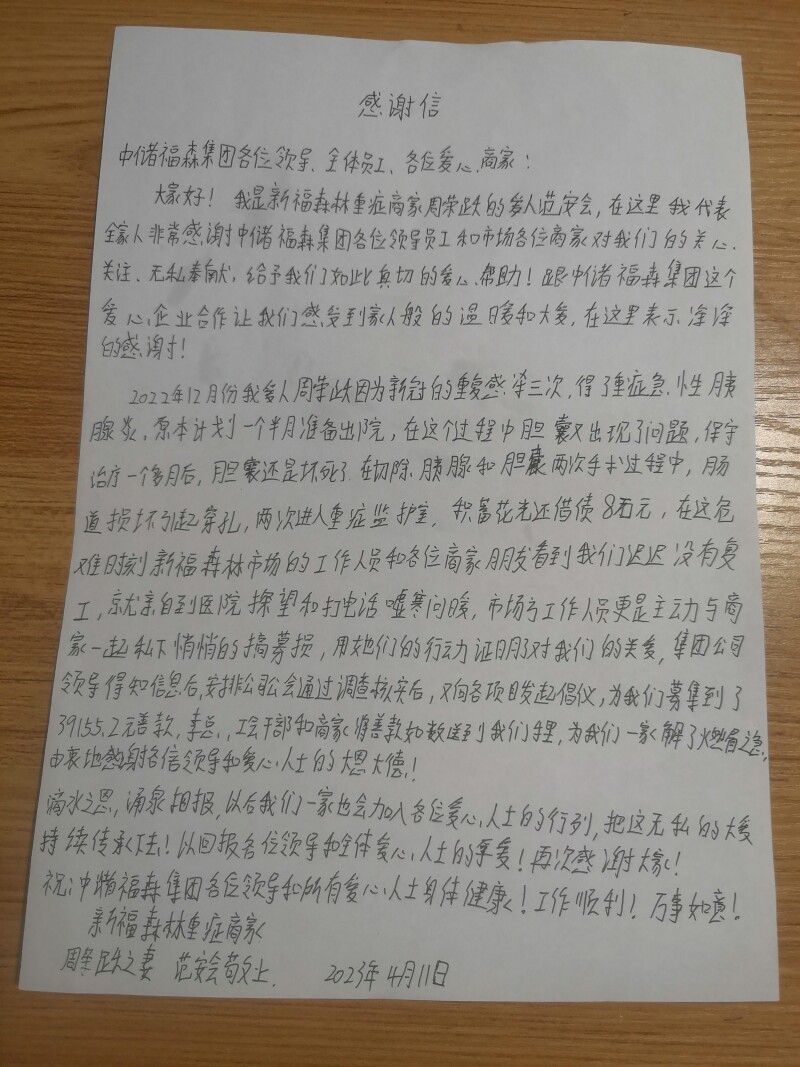 感谢信
中储福森集团各位领导、全体员工、各位爱心商家：
大家好！我是新福森林重症商家周荣跃的爱人范安会，在这里我代表
全家人非常感谢中储福森集团各位领导员工和市场各位商家对我们的关心、
关注、无私奉献，给予我们如此真切的爱心帮助！跟中储福森集团这个
爱心企业合作让我们感受到家人般的温暖和大爱，在这里表示深深
的感谢！
2022年12月份我爱人周荣跃因为新冠的重复感染三次，得了重症急性胰
腺炎，原本计划一个半月准备出院，在这个过程中胆囊又出现了问题，保守
治疗一个多月后，胆囊还是坏死了。在切除胰腺和胆囊两次手术过程中，肠
道损坏引起穿孔，两次进入重症监护室，积蓄花光还借债8万元，在这危
难时刻新福森林市场的工作人员和各位商家朋友看到我们迟迟没有复
工，亲自到医院探望和打电话嘘寒问暖，市场工作人员更是主动与商
家一起私下悄悄的搞募损，用她们的行动证明了对我们的关爱，集团公司
领导得知信息后，安排公司工会通过调查核实后，又向各项目发起倡仪，为我们募集到了
39155.2元善款，李总、工会干部和商家将善款如数送到我们手里，为我们一家解了燃眉之急，
由衷地感谢各信领导和爱心人士的大恩大德！
滴水之恩，涌泉相报，以后我们一家也会加入各位爱心人士的行列，把这无私的大爱
持续传承下去！以回报各位领导和全体爱心人士的厚爱！再次感谢大家！
祝：中储福森集团各位领导和所有爱心人士身体健康！工作顺利！万事如意！
新福森林重症商家
周荣跃之妻 范安会敬上. 2023年4月11日